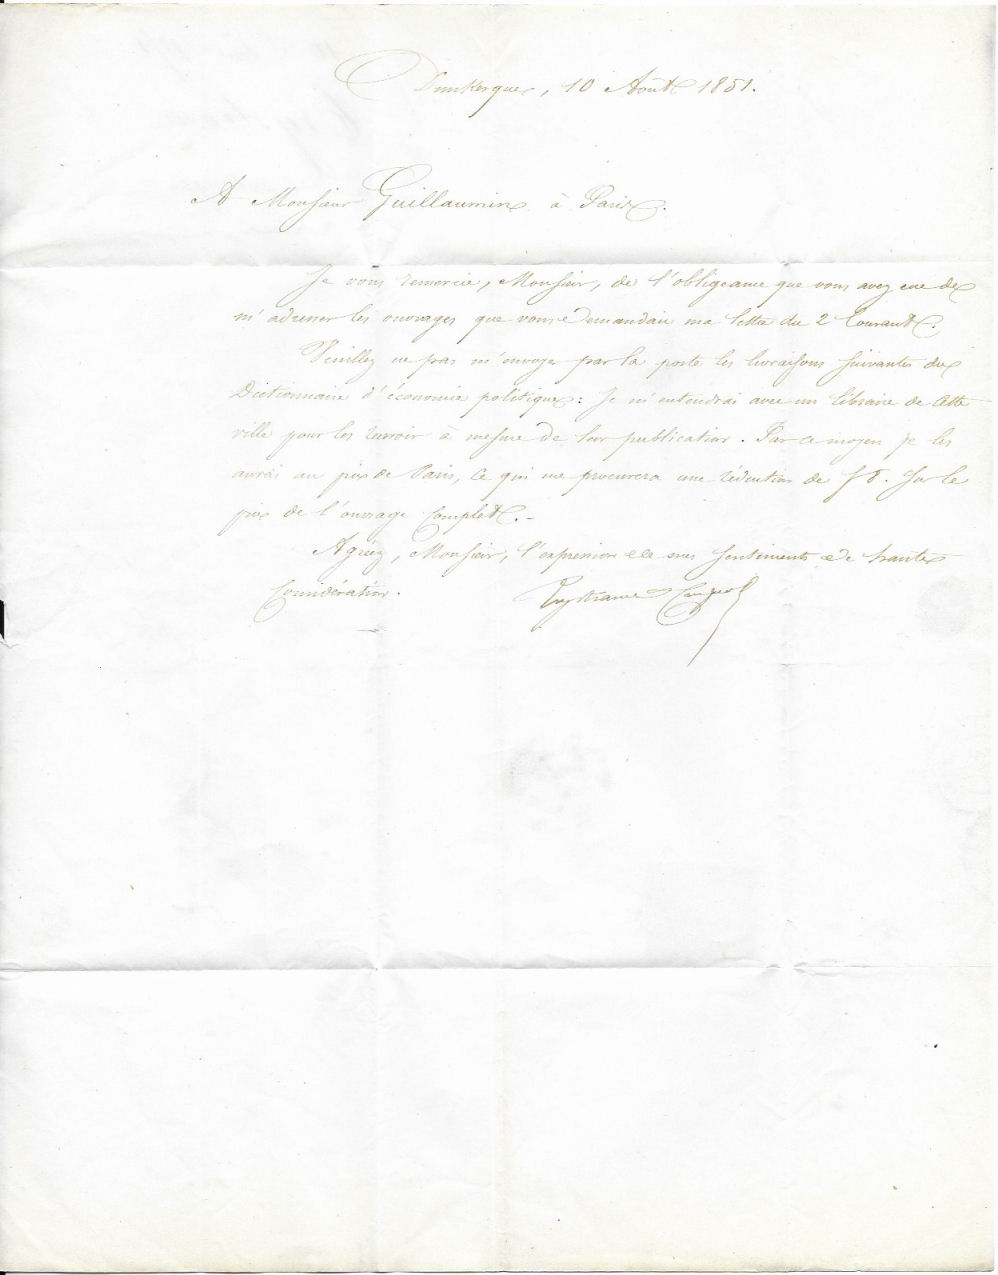 Dunkerque, 10 Août 1851.
A Monsieur Guillaumin à Paris.
Je vous remercie, Monsieur, de l'obligeance que vous avez eue de
m'adresser les ouvrages que vous demandait ma lettre du 2 Courant.
Veuillez ne pas m'envoyer par la poste les livraisons suivantes du
Dictionnaire d'économie politique: Je m'entendrai avec un libraire de cette
ville pour les recevoir à mesure de leur publication. Par ce moyen je les
aurai au prix de Paris, ce qui me procurera une réduction de sur le
prix de l'ouvrage complet.-
Agréez, Monsieur, l'expression de mes sentiments de haute
Considération.